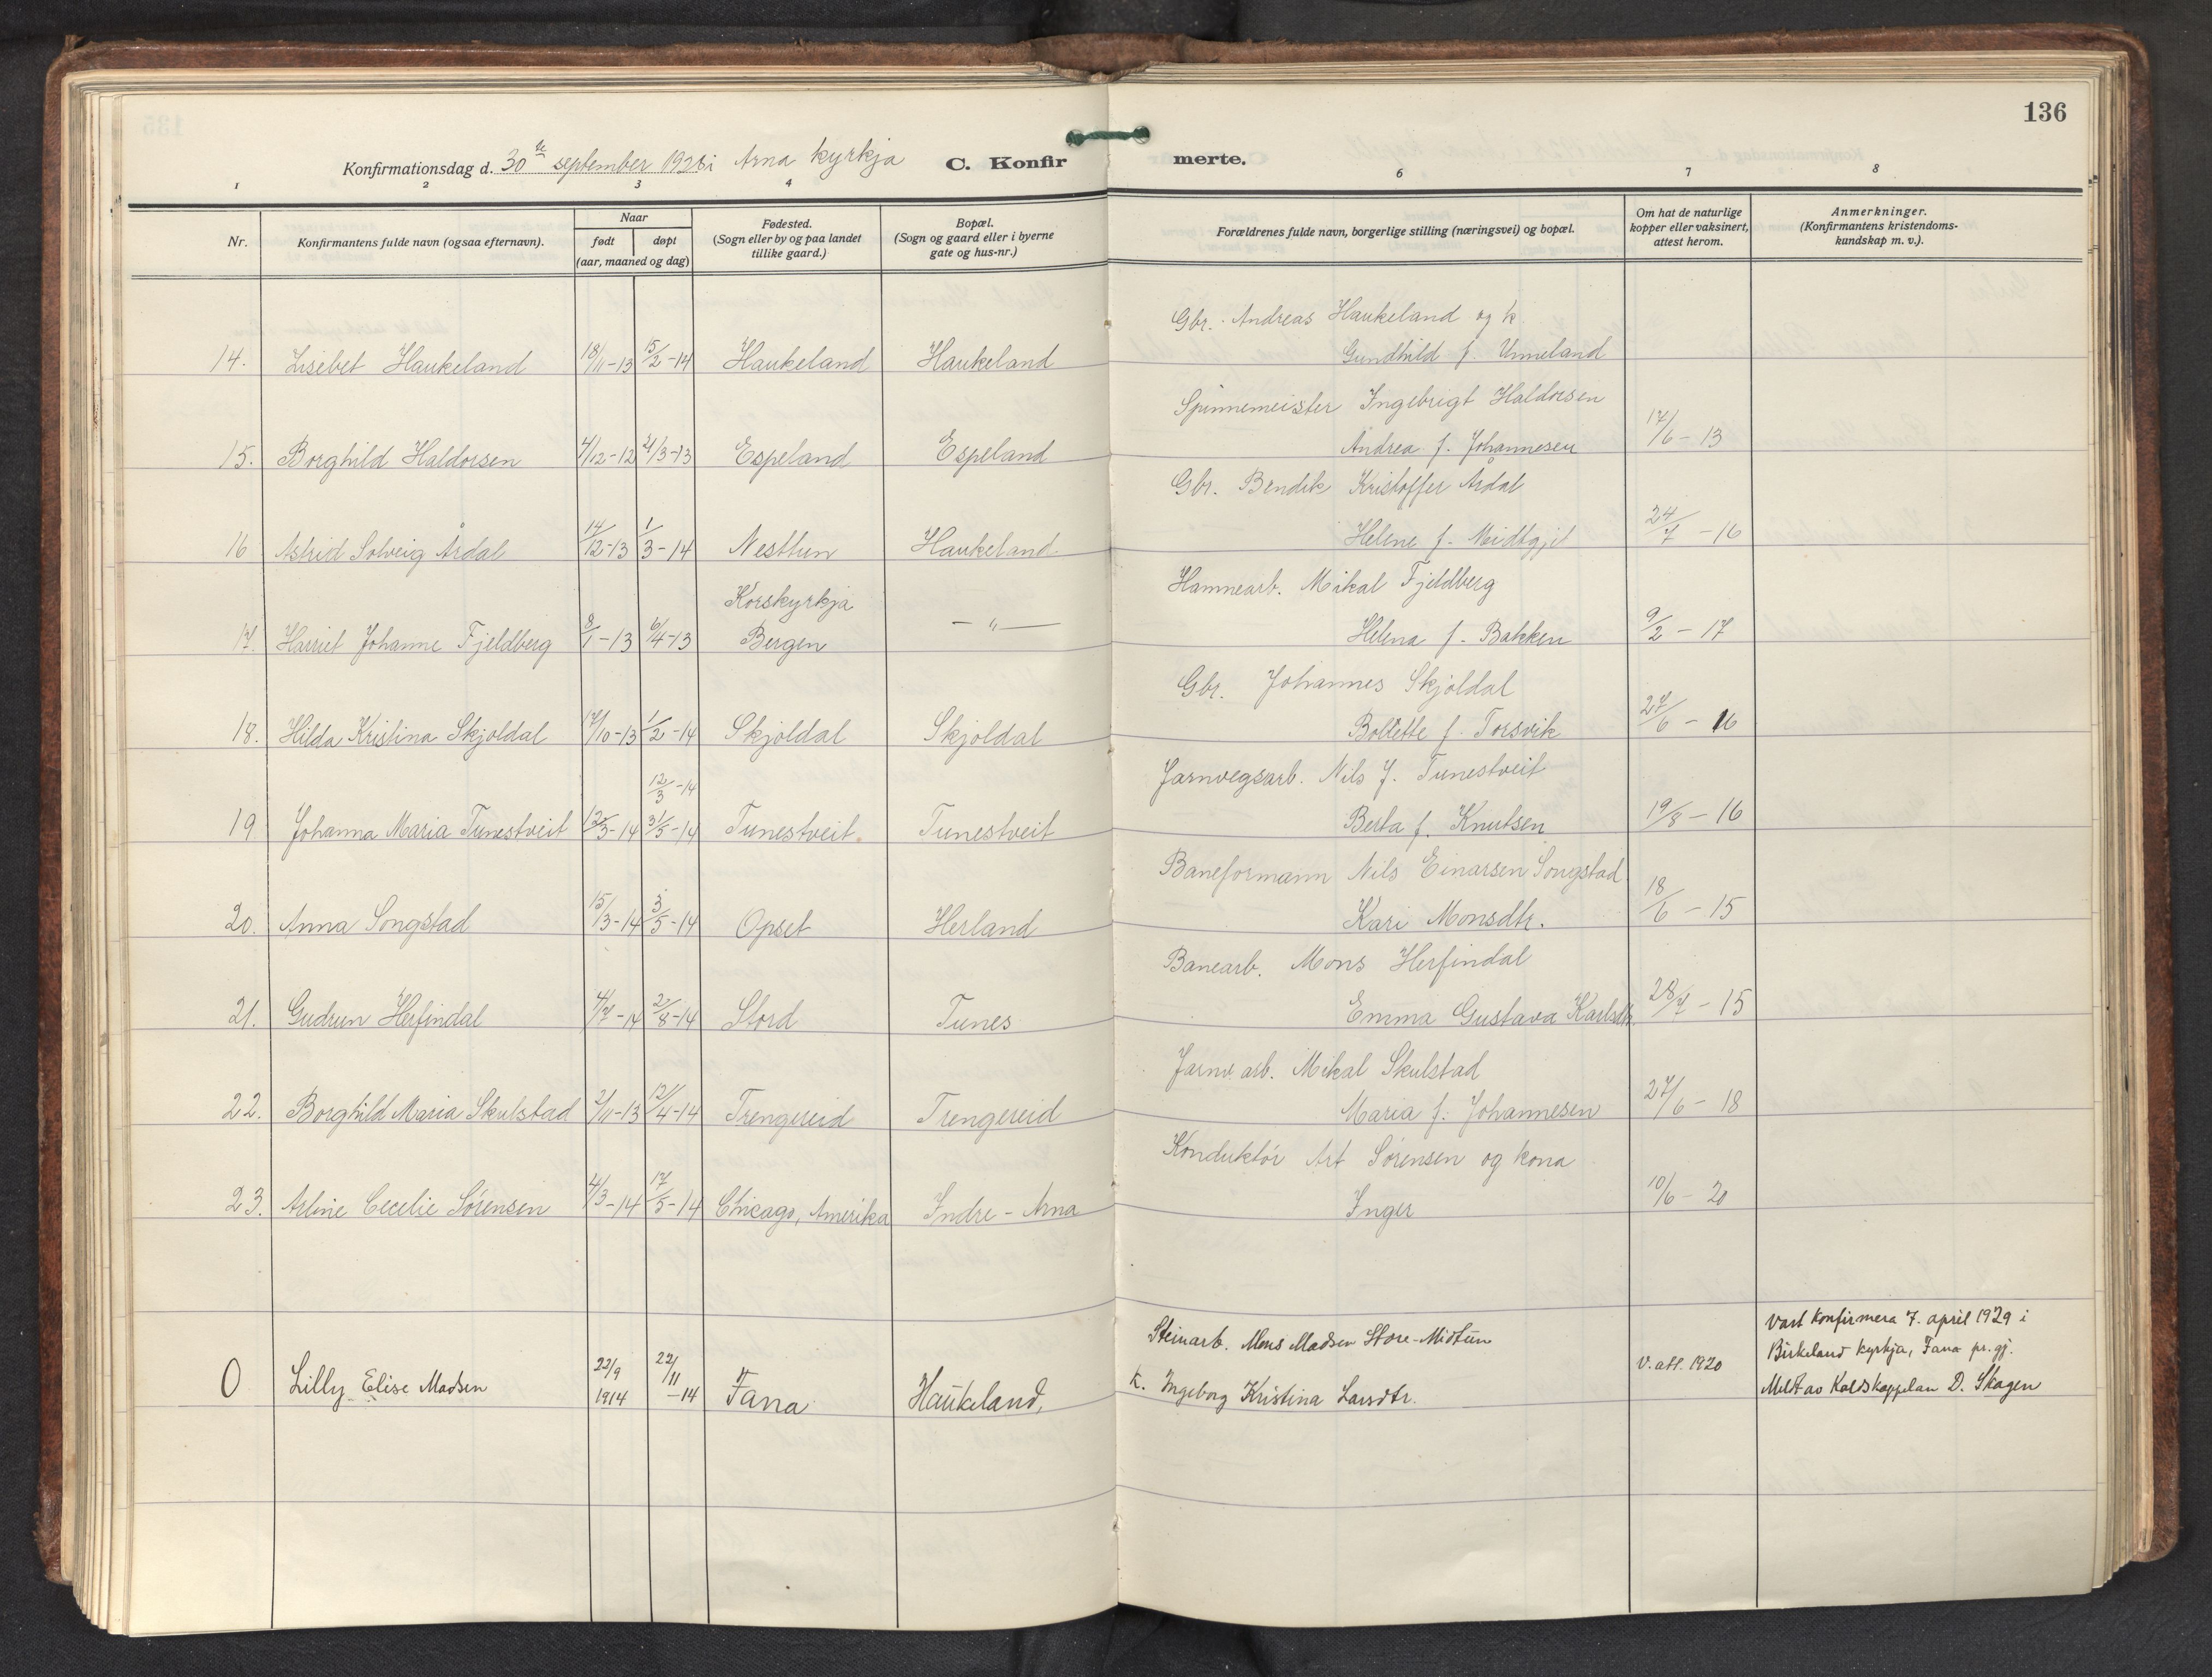 136
Konfirmationsdag d. 30te september 1928 i Arna kyrkja C. Konfirmerte.
1 2 3 4 6 7 8
Nr.
Konfirmantens fulde navn (ogsaa efternavn).
Naar
født døpt
(aar, maaned og dag)
Fødested.
(Sogn eller by og paa landet
tillike gaard.)
Bopæl.
(Sogn og gaard eller i byerne
gate og hus-nr.)
Forældrenes fulde navn, borgerlige stilling (næringsvei) og bopæl.
Om hat de naturlige
kopper eller vaksinert,
attest herom.
Anmerkninger.
(Konfirmantens kristendoms-
kundskap m. v.).
Gbr. Andreas Haukeland og k.
14. Lisebet Haukeland 18/11-13 15/2-14 Haukeland Haukeland Gundhild f. Unneland
Spinnemeister Ingebrigt Haldorsen
15. Borghild Haldorsen 4/12-12 24/3-13 Espeland Espeland Andrea f. Johannesen 17/6-13
Gbr. Bendik Kristoffer Årdal
16 Astrid Solveig Årdal 14/12-13 1/3-14 Nesttun Haukeland Helene f. Midtgjel 24/7-16
Korskyrkja Hamnearb. Mikal Fjeldberg
17. Harriet Johanne Fjeldberg 8/1-13 6/4-13 Bergen — " — Helena f. Bakken 9/2-17
Gbr. Johannes Skjoldal
18. Hilda Kristina Skjoldal 17/10-13 1/2-14 Skjoldal Skjoldal Bolette f. Torsvik 27/6-16
12/3-14 Jarnvegsarb. Nils J. Tunestveit
19 Johanna Maria Tunestveit 12/3-14 31/5-14 Tunestveit. Tunestveit Berta f. Knutsen 19/8-16
Baneformann Nils Einarsen Songstad
20. Anna Songstad 15/3-14 3/5-14 Opset Herland Kari Monsdtr. 18/6-15
Banearb. Mons Herfindal
21. Gudrun Herfindal 4/7-14 2/8-14 Stord Tunes Emma Gustava Karlsdtr. 28/7-15
Jarnv. arb. Mikal Skulstad
22. Borghild Maria Skulstad 2/11-13 12/4-14 Trengereid Trengereid Maria f. Johannesen 27/6-18
Konduktør Art Sørensen og kona
23. Arline Cecelie Sørensen 4/3-14 17/5-14 Chicago, Amerika Indre-Arna Inger 10/6-20
Steinarb. Mons Madsen Store-Midtun
0 Lilly Elise Madsen 22/9 1914 22/11-14 Fana Haukeland, k. Ingeborg Kristina Larsdtr. V. att. 1920
Vart Konfirmera 7. april 1929 i
Birkeland kyrkja, Fana pr.gj.
Meldt av Kaldskappelan D. Skagen